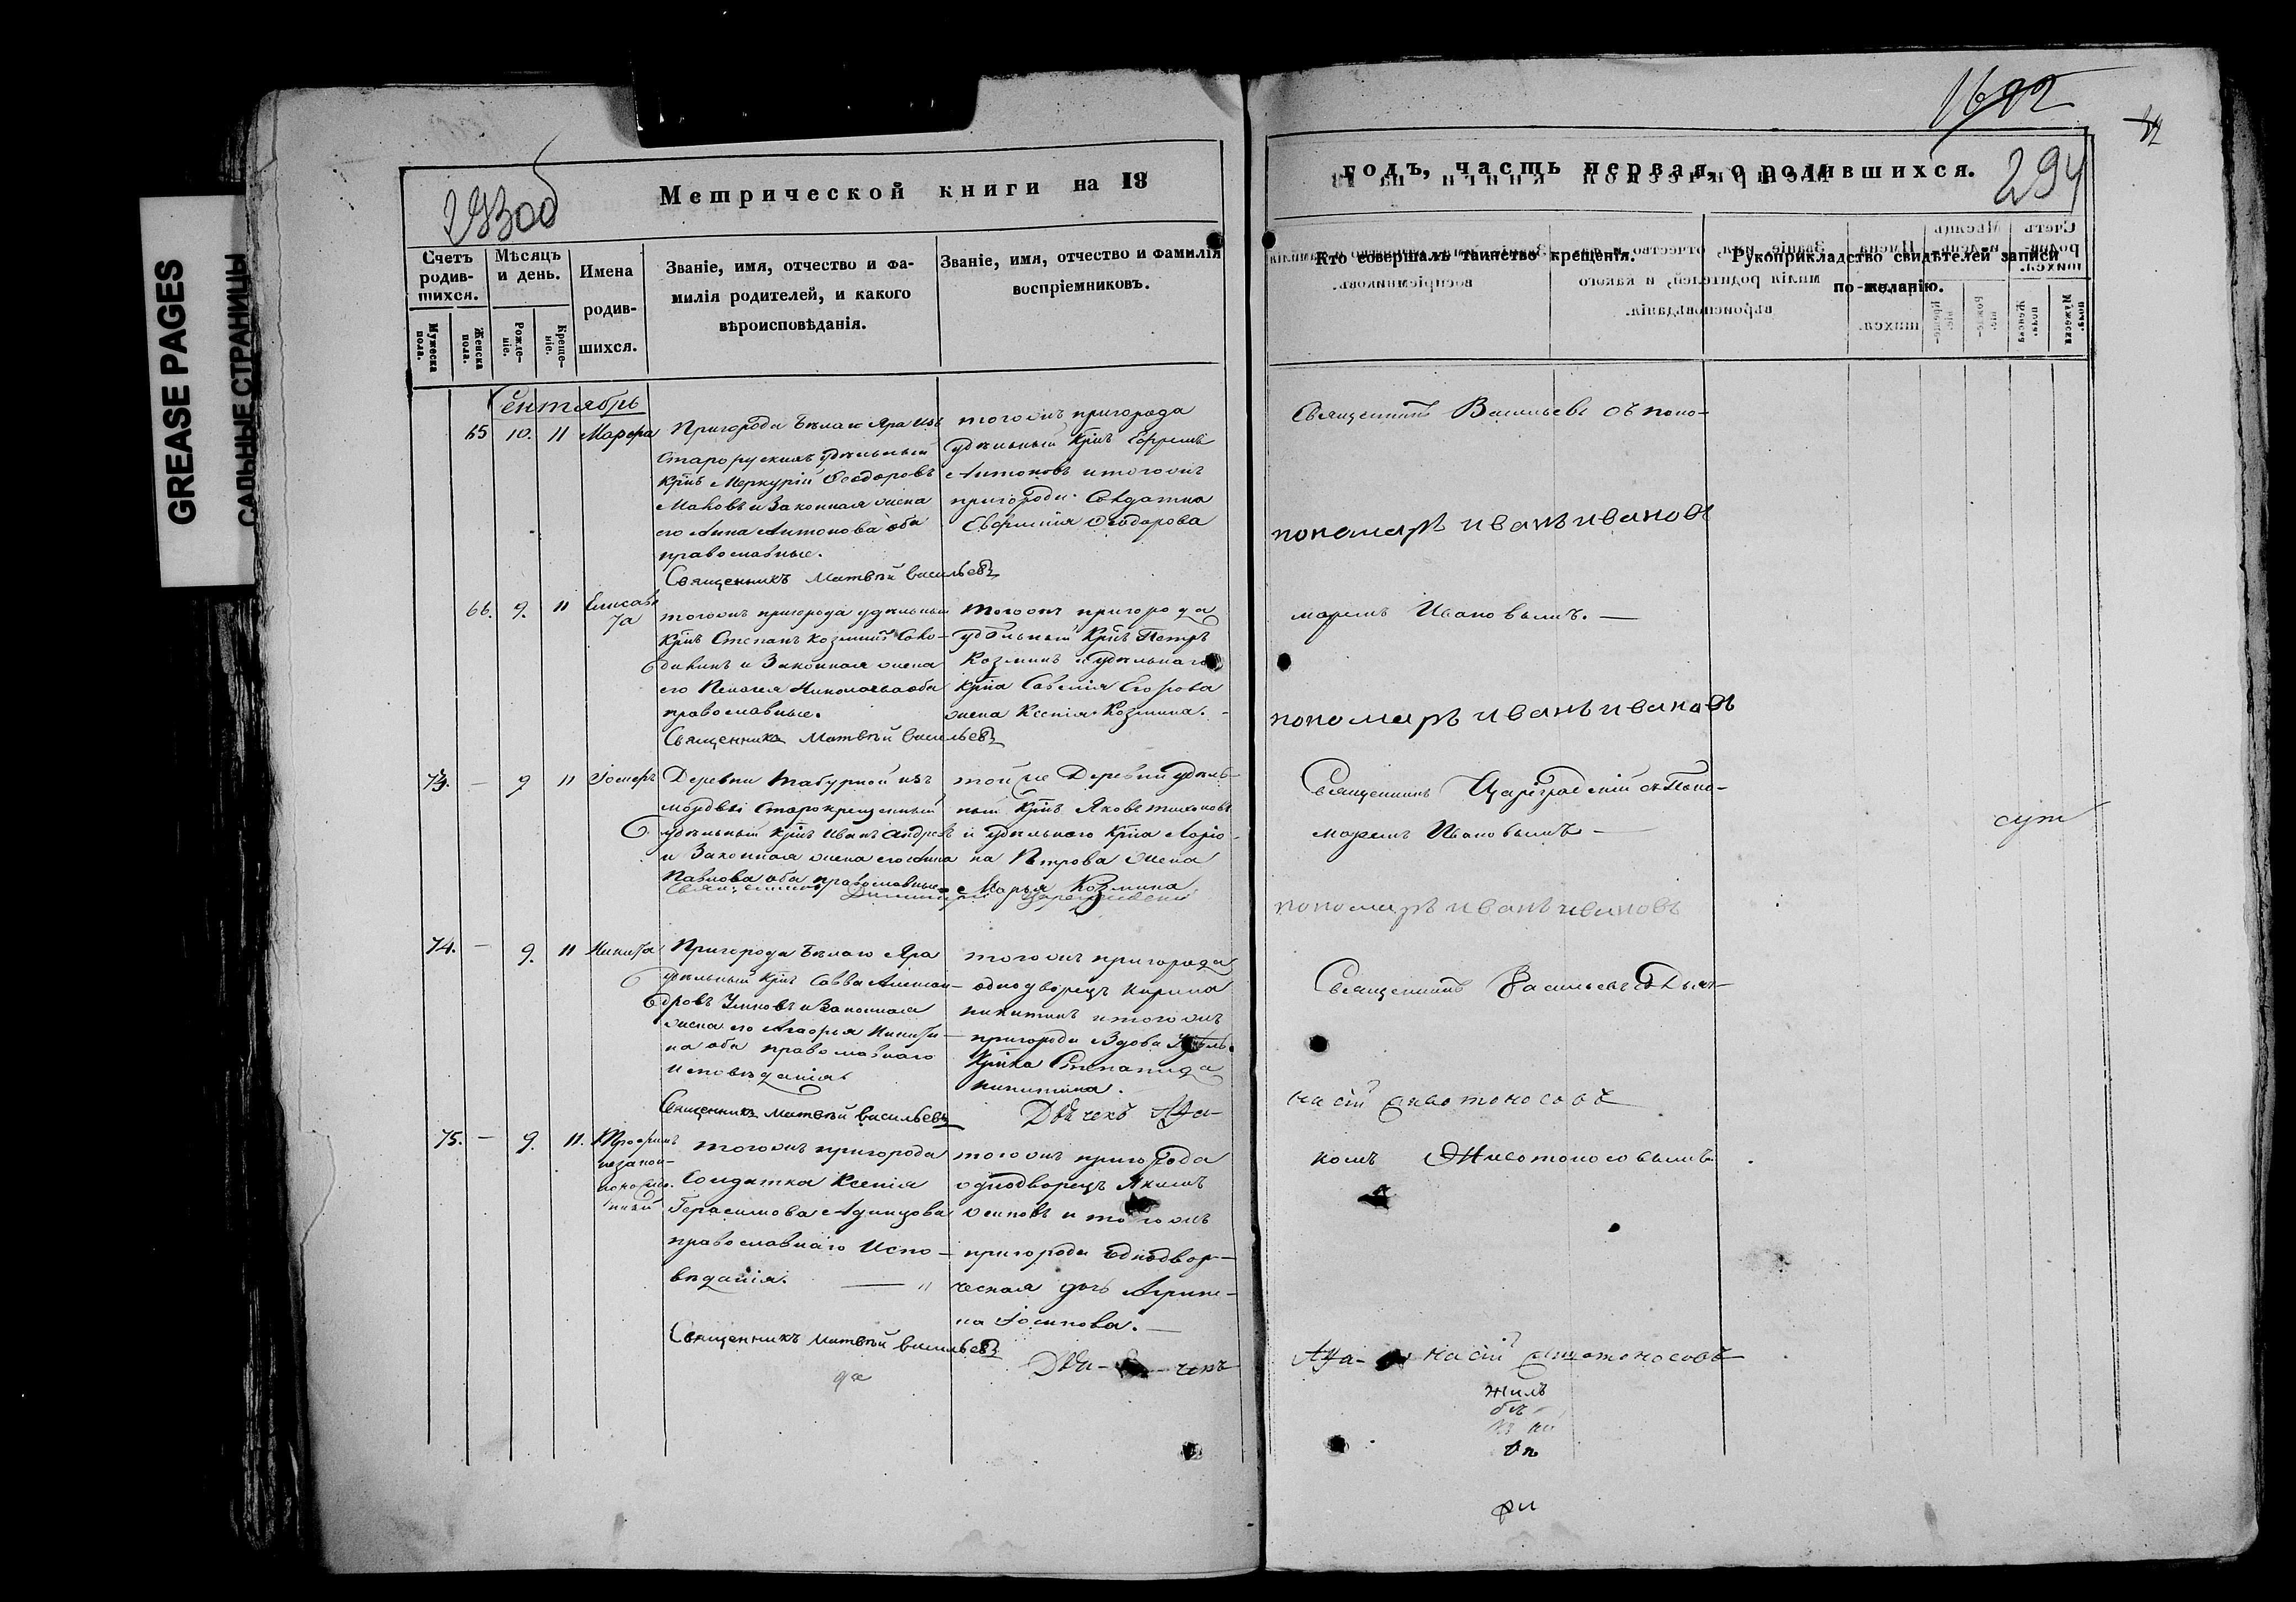 GREASE PAGES
САЛЬНЫЕ СТРАНИЦЫ
293об
Метрической книги на 18
Счетъ родив-шихся.
Мужеска пола.
Женска пола.
Мѣсяцъ и день.
Рожде-ніе.
Креще-ніе.
Имена
родив-
шихся.
Званіе, имя, отчество и фа-
милія родителей, и какого
вѣроисповѣданія.
Званіе, имя, отчество и фамилія
воспріемниковъ.
Сентябрь
65 10. 11 Марѳа
Пригорода Бѣлаго Яра изъ
Старорускихъ удѣльный
Крнъ Меркурій Ѳеодоровъ
и Законная жена
его Анна Антонова оба
православные.
Священникъ Матвѣй Васильевъ
тогожъ пригорода
удѣльный Крнъ Ефремъ
Антоновъ и тогожъ
пригорода Солдатка
Евфимія Ѳеодорова
66. 9. 11 Елисаве
та
тогожъ пригорода удѣльный
Крнъ Степанъ Козминъ
и Законная жена
его Пелагея Николаева оба
православные.
Священникъ Матвѣй Васильевъ
тогожъ пригорода
удѣльный Крнъ Петръ
Козминъ и удѣльнаго
Крна Савелія Егорова
жена Ксенія Козмина.
73. — 9 11
Деревни Табурной изъ
мордвы Старокрещенный
удѣльный Крнъ Иванъ Андреевъ
и Законная жена его Анна
Павлова оба православные
Священникъ Димитрій Цареградскій
той же Деревни удѣль-
ный Крнъ Яковъ Тихоновъ
и удѣльнаго Крна Ларіо-
на Петрова жена
Марья Козмина.
74. — 9. 11 Никита
Пригорода Бѣлаго Яра
удѣльный Крнъ Савва Алексан-
дровъ и Законная
жена его Агафья Никити-
на оба православнаго
Исповѣданія
Священникъ Матвѣй Васильевъ
тогожъ пригорода
однодворецъ Кирила
Никитинъ и тогожъ
пригорода Вдова Удѣль.
Крнка Степанида
Никитина.
Дьячекъ Афа-
75. — 9. 11. Трофимъ
незакон-
норож-
тогожъ пригорода
Солдатка Ксенія
Герасимова Адинцова
православнаго Испо-
вѣданія. — "
Священникъ Матвѣй Васильевъ
тогожъ пригорода
однодворецъ Якимъ
Осиповъ и тогожъ
пригорода Однодвор-
ческая дочь Агрипе-
на Осипова. —
Дья- -чекъ
1692
294
годъ, часть первая, о родившихся.
Кто совершалъ таинство крещенія.
Рукоприкладство свидѣтелей записи
по желанію.
Священникъ Васильевъ съ поно-
пономарь иванъ ивановъ
маремъ Ивановымъ. —
пономарь иванъ ивановъ
Священникъ Цареградскій съ Поно-
маремъ Ивановымъ —
пономарь иванъ ивановъ
Священникъ Васильевъ съ Дьяч-
насій Животоносовъ
комъ Животоносовымъ.
Афа- насій Животоносовъ